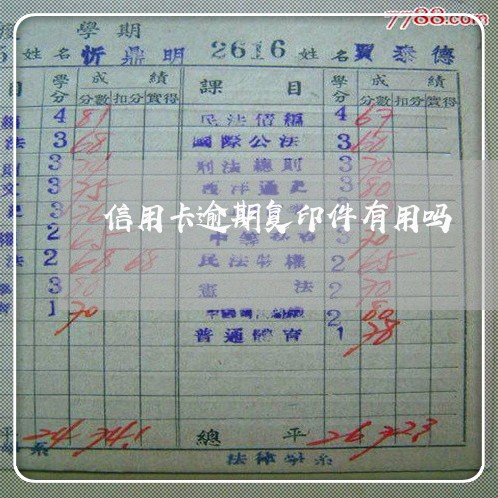 7788.com
學期
5 姓名 忻鼎明 2616 姓名 賈泰德
目 學分 成績 課目 學分 成績
分數 扣分 實得 分數 扣分 實得
4 81 民法債編 4 67
法 3 68 國際公法 3 60
則 3 刑法總則 3 70
3 75 西洋通史 3 80
史 3
信用卡逾期复印件有用吗
2 65 3 70
法 2 68 68 民法物權 2 65
3 80 憲法 2 70
育 1 70 2 80
普通體育 1 78
平 24 74.1 總平 26 72.3
系 法律學系